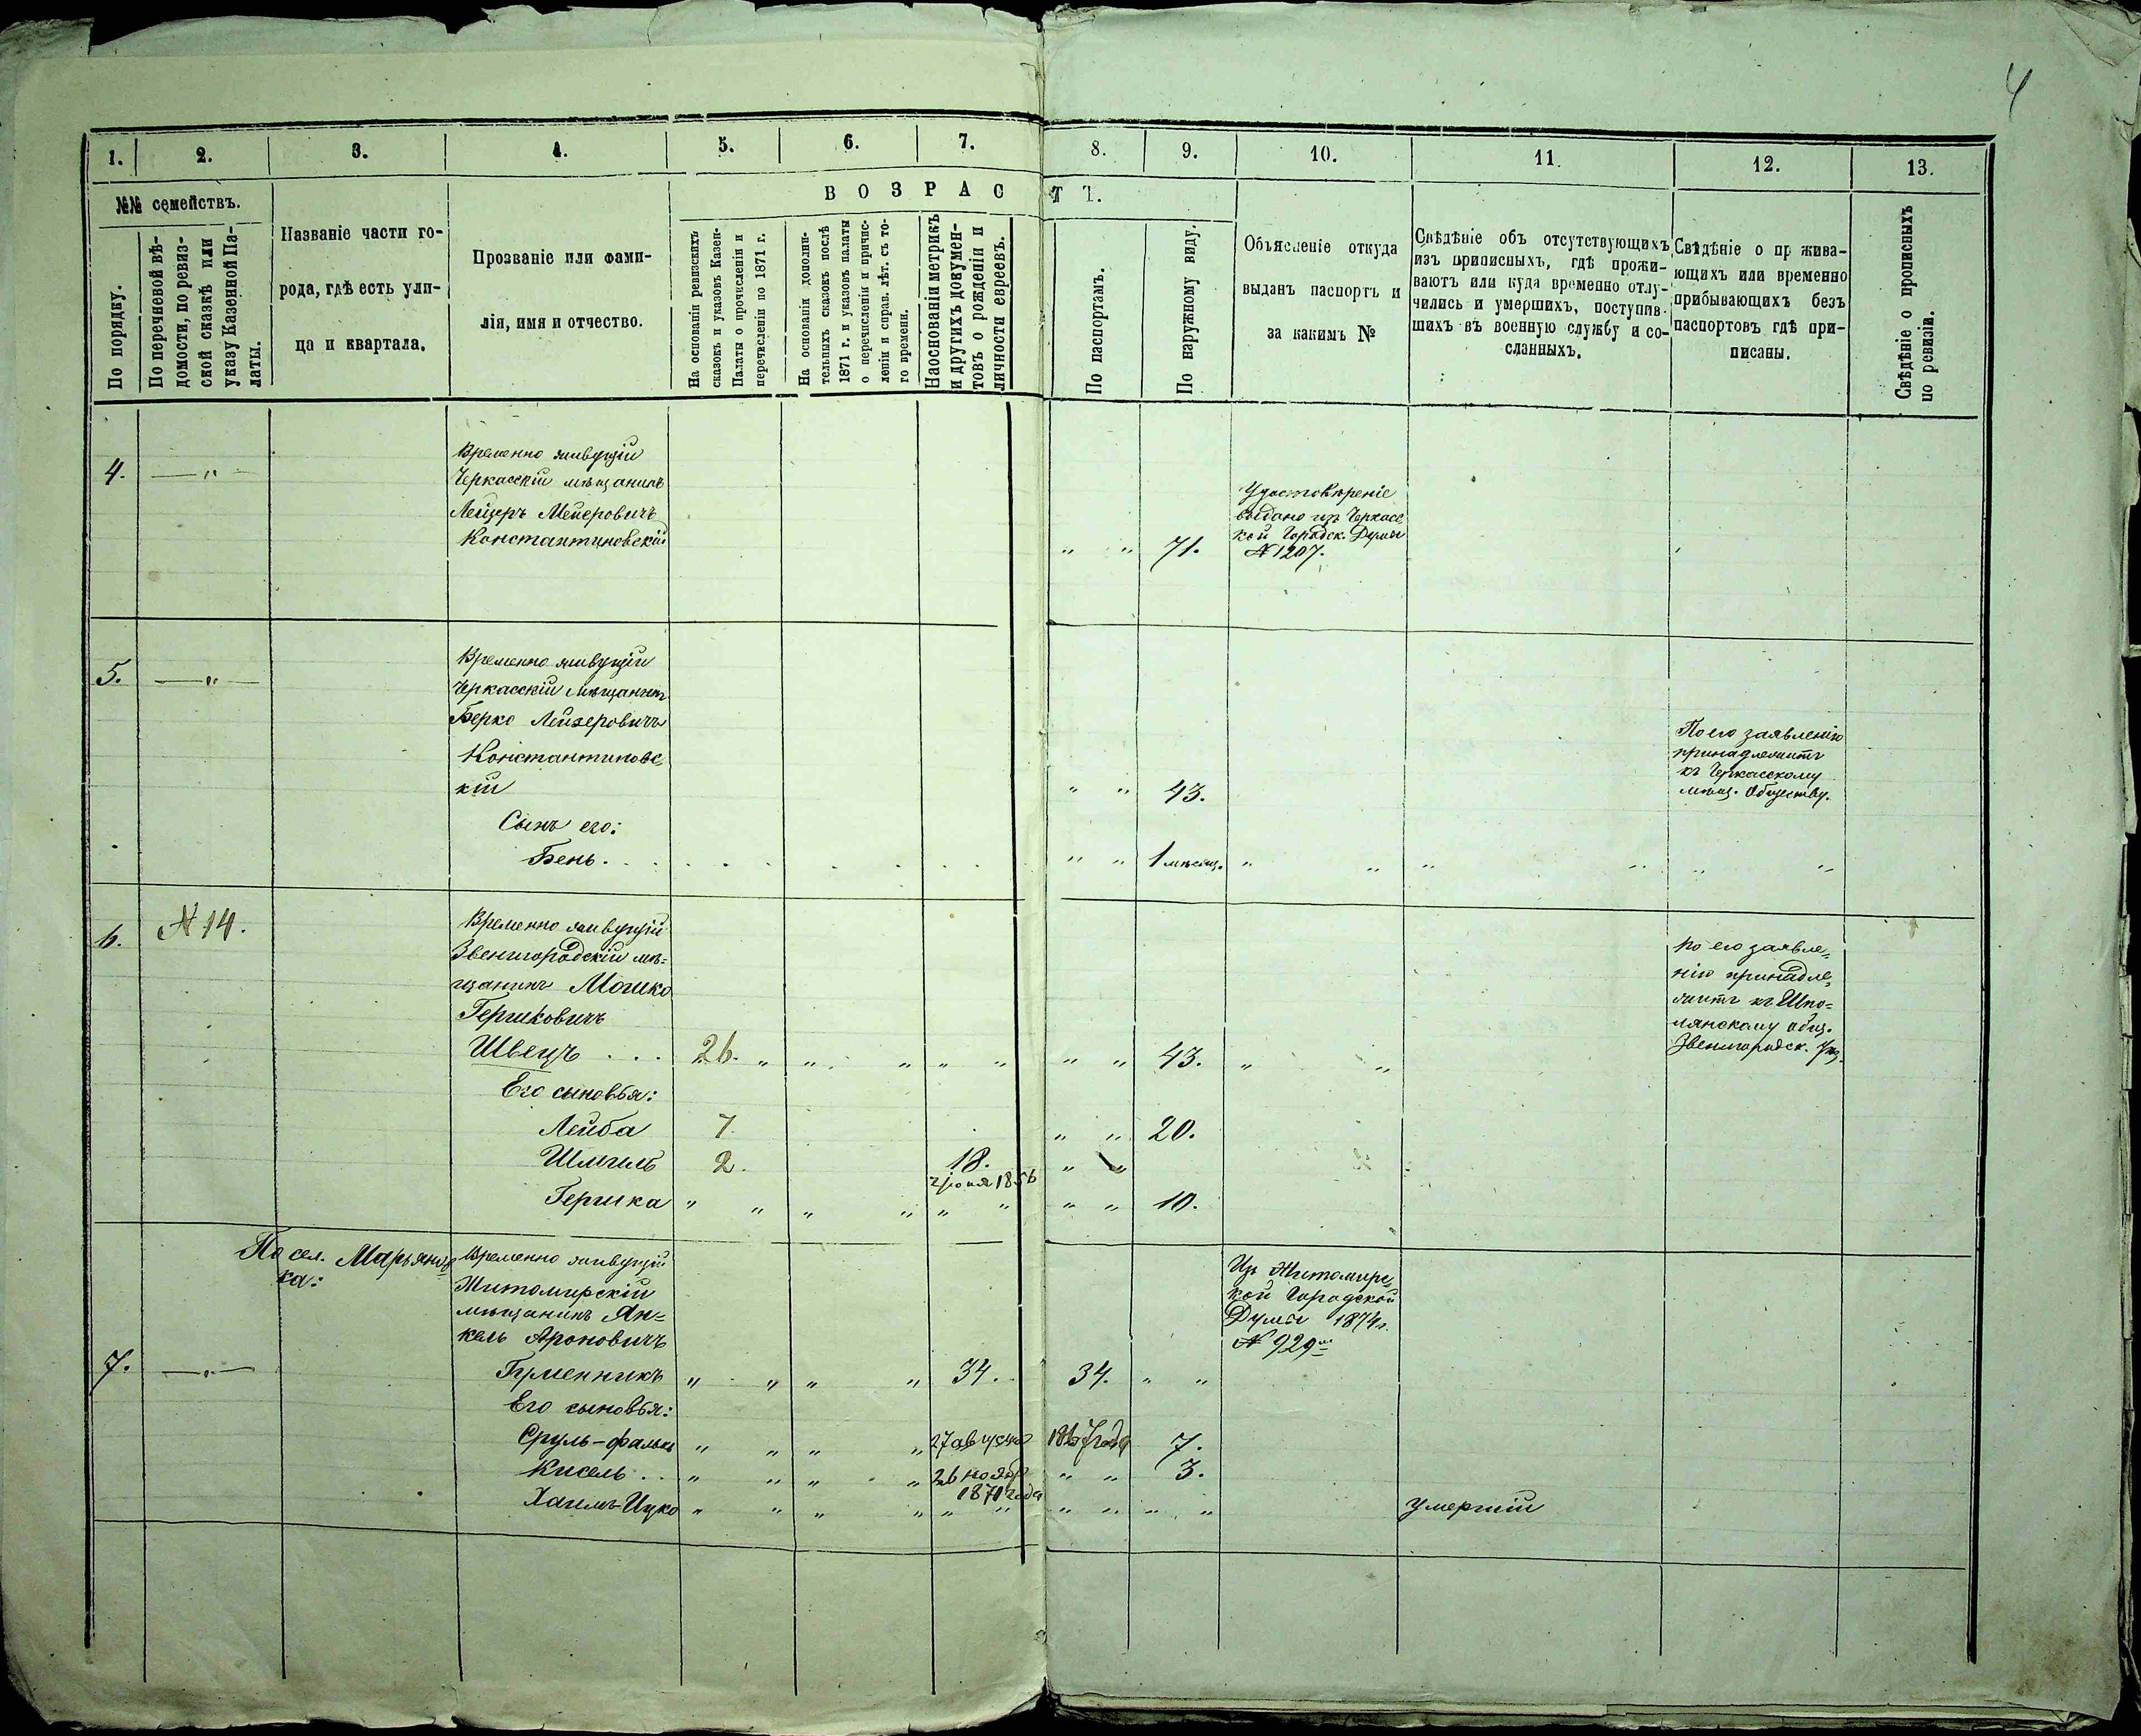 4
1.
2.
3.
4.
5.
6.
7.
8.
9.
10.
11.
12.
13.
№№ семействъ.
По порядку.
По перечневой вѣ-
домости, по ревиз-
ской сказкѣ или
указу Казенной Па-
латы.
Названіе части го-
рода, гдѣ есть ули-
ца и квартала.
Прозваніе или фами-
лія, имя и отчество.
ВОЗРАС
ТЪ.
На основаніи ревизскихъ
сказокъ и указовъ Казен-
Палаты о прочисленіи и
перечисленіи по 1871 г.
На основаніи дополни-
тельныхъ сказокъ послѣ
1871 г. и указовъ палаты
о перечисленіи и причис-
леніи и справ. лѣт. съ то-
го времени.
На основаніи метрикъ
и другихъ докумен-
товъ о рожденіи и
личности евреевъ.
По паспортамъ.
По наружному виду.
Объясненіе откуда
выданъ паспортъ и
за какимъ №
Свѣдѣніе объ отсутствующихъ
изъ приписныхъ, гдѣ прожи-
ваютъ или куда временно отлу-
чились и умершихъ, поступив-
шихъ въ военную службу и со-
сланныхъ.
Свѣдѣніе о пр жива-
ющихъ или временно
прибывающихъ безъ
паспортовъ гдѣ при-
писаны.
Свѣдѣніе о прописныхъ
по ревизіи.
4. — " —
Временно живущій
Черкасскій мѣщанинъ
Лейзеръ Мейеровичъ
Константиновскій
" " 71.
Удостовѣреніе
выдано изъ Черкасс
кой Городск. Думы
№ 1207.
5. — " —
Временно живущій
Черкасскій мѣщанинъ
Берко Лейзеровичъ
Константиновс
кій
" " 43.
По его заявленію
принадлежитъ
къ Черкасскому
мѣщ. Обществу.
Сынъ его:
Бень. . . " " 1 мѣсяц. " " " " " "
6. № 14.
Временно живущій
Звенигородскій мѣ=
щанинъ Мошко
Гершковичъ
Швецъ . . . 26. " " " " " " " 43. " "
По его заявле„
нію принадле„
житъ къ Шпо=
лянскому общ.
Звенигородск. Уѣз.
Его сыновья:
Лейба 7 " " 20.
Шмиль 2. 18. " "
2 іюня 1856
Гершка " " " " " " " " 10.
По сел. Марьянов
ка:
Временно живущій
Житомирскій
мѣщанинъ Ян=
кель Ароновичъ
Изъ Житомирс„
кой Городской
Думы 1874 г.
№ 929
7. — " — Гурменникъ " " " " 34. 34. " "
Его сыновья:
Сруль-Фалькъ " " " " 27 августа 1867 года 7.
Кисель . . " " " " 26 нояб " " 3.
1871 года
Хаимъ-Ицко " " " " " " " " " " умершій